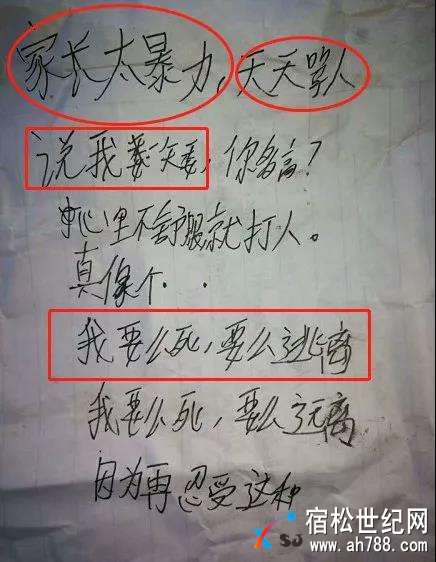 家长太暴力,天天骂人
说我矮矮,你多高?
心里不舒服就打人。
真像个..
我要么死,要么逃离
我要么死,要么远离
因为再忍受这种
宿松世纪网
www.ah788.com